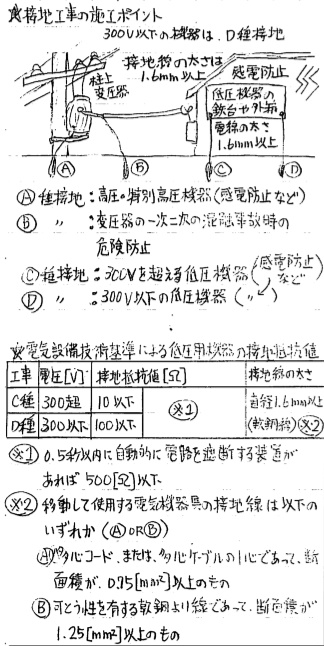 ☆接地工事の施工ポイント
300V以下の機器は、D種接地
接地線の太さは
1.6mm以上
感電防止
柱上
変圧器
低圧機器の
鉄台や外箱
電線の太さ
1.6mm以上
Ⓐ Ⓑ Ⓒ Ⓓ
Ⓐ種接地:高圧・特別高圧機器(感電防止など)
Ⓑ 〃 :変圧器の一次二次の混融事故時の
危険防止
Ⓒ種接地:300Vを超える低圧機器(感電防止など)
Ⓓ 〃 :300V以下の低圧機器(〃)
☆電気設備技術基準による低圧用機器の接地抵抗値
工事 電圧[V] 接地抵抗値[Ω] 接地線の太さ
C種 300超 10以下 ※1 直径1.6mm以上
D種 300以下 100以下 (軟銅線)※2
※1 0.5秒以内に自動的に電路を遮断する装置が
あれば 500[Ω]以下
※2 移動して使用する電気機器具の接地線は以下の
いずれか (Ⓐ OR Ⓑ)
Ⓐ 多心コード、または、多心ケーブルの1心であって、断
面積が、0.75[mm²]以上のもの
Ⓑ 可とう性を有する軟銅より線であって、断面積が
1.25[mm²]以上のもの